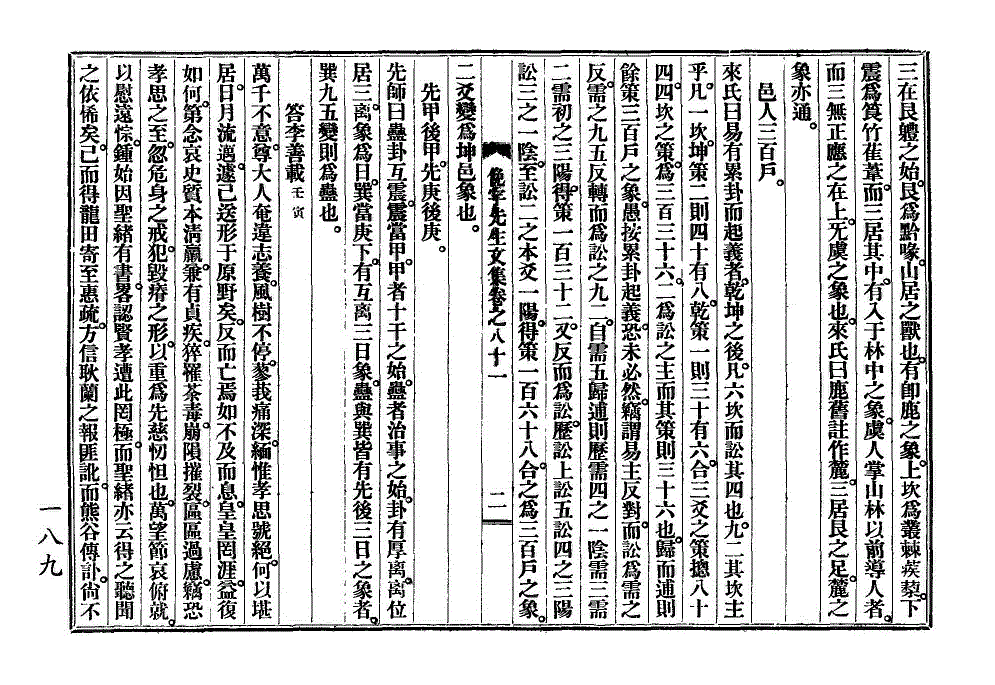 三在艮軆之始艮爲黔喙山居之獸也有卽鹿之象上坎爲叢棘蒺藜下
震爲筤竹萑葦而三居其中有入于林中之象虞人掌山林以前導人者
而三無正應之在上无虞之象也來氏曰鹿舊註作麓三居艮之足麓之
象亦通。
邑人三百戶。
來氏曰易有累卦而起義者乾坤之後凡六坎而訟其四也九二其坎主
乎凡一坎坤策二則四十有八乾策一則三十有六合三爻之策摠八十
四四坎之策爲三百三十六二爲訟之主而其策則三十六也歸而逋則
餘策三百戶之象愚按累卦起義恐未必然竊謂易主反對而訟爲需之
反需之九五反轉而爲訟之九二自需五歸逋則歷需四之一陰需三需
二需初之三陽得策一百三十二又反而爲訟歷訟上訟五訟四之三陽
訟三之一陰至訟二之本爻一陽得策一百六十八合之爲三百戶之象
俛宇先生文集卷之八十一
二一
二爻變爲坤邑象也。
先甲後甲先庚後庚。
先師曰蠱卦互震震當甲甲者十干之始蠱者治事之始卦有厚离离位
居三离象爲日巽當庚下有互离三日象蠱與巽皆有先後三日之象者
巽九五變則爲蠱也。
答李善載 壬寅
萬千不意尊大人奄違志養風樹不停蓼莪痛深緬惟孝思號絕何以堪
居日月流邁遽已送形于原野矣反而亡焉如不及而息皇皇罔涯益復
如何第念哀史質本清羸兼有貞疾猝罹荼毒崩隕摧裂區區過慮竊恐
孝思之至忽危身之戒犯毀瘠之形以重爲先慈忉怛也萬望節哀俯就
以慰遠悰鍾始因聖緖有書畧認賢孝遭此罔極而聖緖亦云得之聽聞
之依俙矣已而得龍田寄至惠疏方信耿蘭之報匪訛而熊谷傳訃尙不
一八九